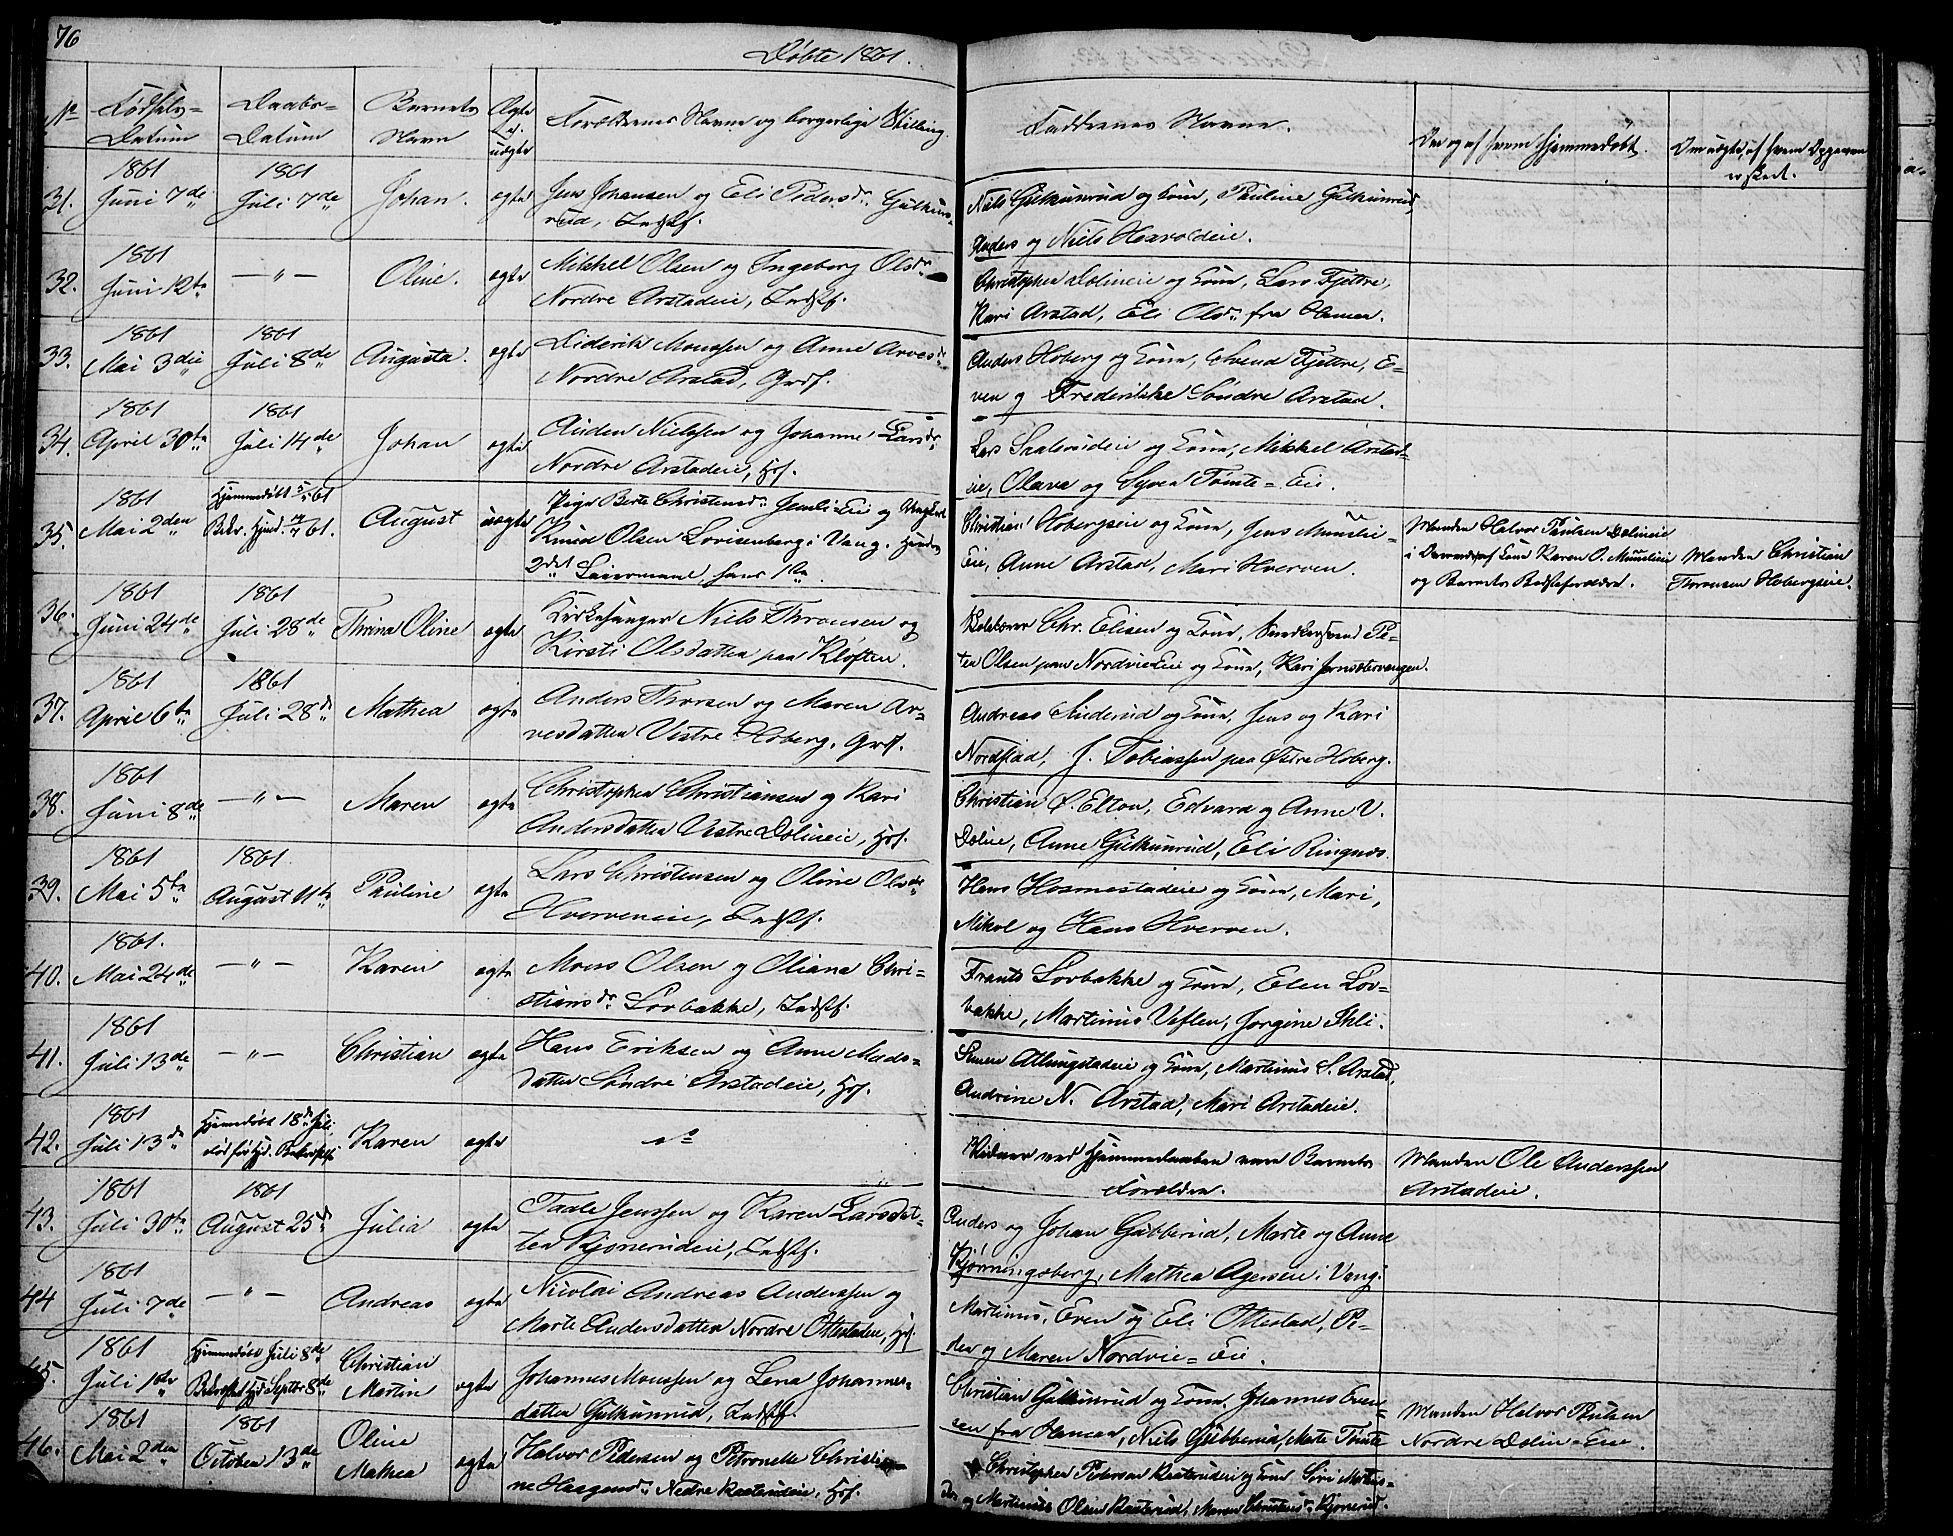 76
Døbte 1861.
No
Fødsels-
Datum
Daabs-
Datum
Barnets
Navn
Ægte
el.
uægte
Forældrenes Navne og borgerlige Stilling.
Faddernes Navne.
Om og af hvem hjemmedøbt.
Om uægte, af hvem Opgaven
er skeet.
31.
1861
Juni 7de
1861
Juli 7de
Johan.
ægte
Jens Johansen og Eli Pedersdr. Gulkuns-
rud, Indstf.
Niels Gulkunrud og Kone, Pauline Gulkunrud,
Anders og Niels Haroldeie.
32.
1861
Juni 12te
— " —
Oline.
ægte
Mikkel Olsen og Ingeborg Olsdr.
Nordre Arstadeie, Indstf.
Christopher Dolineie og Kone, Lars Fjettre,
Kari Arstad, Eli Olsdr. fra Hamar.
33.
1861
Mai 3die
1861
Juli 8de
Augusta.
ægte
Diderik Monssen og Anne Arvesdr.
Nordre Arstad, Grdf.
Anders Hoberg og Kone, Svend Fjettre, E-
ven og Frederikke Søndre Arstad.
34.
1861
April 30te
1861
Juli 14de
Johan
ægte
Auden Nielssen og Johanne Larsdr.
Nordre Arstadeie, Hf.
Lars Saaterudeie og Kone, Mikkel Arstad-
eie, Olava og Syver Tomte-Eie.
35.
1861
Mai 2den
Hjemmedøbt 5/5 61
Bekr. Hjmd. 14/7 61.
August
uægte
Pige Berte Christensdr. Jemli-Eie og Ungkarl
Knud Olsen Lovisenberg i Vang. Hendes
2det Leiermaal, hans 1ste.
Christian Hobergseie og Kone, Jens Munslie-
Eie, Anne Arstad, Mari Hverven.
Manden Halvor Paulsen Dolineie
i Overvær af Kone Karen O. Munslieeie
og Barnets Bedsteforældre.
Manden Christian
Thronsen Hobergseie.
36.
1861
Juni 24de
1861
Juli 28de
Thrina Oline
ægte
Kirkesanger Niels Thronsen og
Kirsti Olsdatter paa Kløften.
Chr. Elisen og Kone, Pe-
ter Olsen paa Nordvi-Eie og Kone, Kari Jernsætervangen.
37.
1861
April 6te
1861
Juli 28de
Mathea
ægte
Anders Thorsen og Maren Ar-
vesdatter Vestre Hoberg, Grdf.
Andreas Sinderud og Kone, Jens og Kari
Nordstad, J. Tobiassen paa Østre Hoberg.
38.
1861
Juni 8de
— " —
Maren
ægte
Christopher Christiansen og Kari
Andersdatter Vestre Dolineie, Hf.
Christian Ø. Elton, Edvard og Anne V.
Dolin, Anne Gulkunrud, Eli Ringnes.
39.
1861
Mai 5te
1861
August 11te
Pauline
ægte
Lars Christensen og Oline Olsdr.
Hverveneie, Indstf.
Hans Hosmestadeie og Kone, Mari,
Mikel og Hans Hverven.
40.
1861.
Mai 24de
— " —
Karen
ægte
Moses Olsen og Oliana Chri-
stiansdr. Lovbakke, Indstf.
Frants Lovbakke og Kone, Elen Lov-
bakke, Martinus Veflen, Jørgine Skli.
41.
1861
Juli 13de
— " —
Christian
ægte
Hans Eriksen og Anne Mads-
datter Søndre Arstadeie, Hf.
Simen Atlungstadeie og Kone, Martinus S. Arstad,
Andrine N. Arstad, Mari Arstadeie.
42.
1861
Juli 13de
Hjemmedøbt 18de Juli
død før Hjd. Bekræftelse
Karen
ægte
do
Vidner ved Hjemmedaaben vare Barnets
Forældre.
Manden Ole Anderssen
Arstadeie.
43.
1861
Juli 30te
1861
August 25de
Julia
ægte
Taale Jenssen og Karen Larsdat-
ter Kjonerudeie, Indstf.
Anders og Johan Gubberud, Marte og Anne
Kjønningsberg, Mathea Agerseie i Vang.
44
1861
Juli 7de
— " —
Andreas
ægte
Nicolai Andreas Anderssen og
Marte Andersdatter Nordre Ottestadeie, Hf.
Martinus, Even og Eli Ottestad, Pe-
der og Maren Nordvie-Eie.
45.
1861
Juli 1ste
Hjemmedøbt Juli 8de
Bekræftet Hjd. Septbr. 8de
Christian
Martin
ægte
Johannes Monssen og Lena Johannes-
datter Gulkunrud, Indstf.
Christian Gulkunrud og Kone, Johannes Even-
sen fra Hamar, Niels Gubberud, Marte Tomte
Manden Halvor Paulsen
Nordre Dolin-Eie.
46.
1861
Mai 2den
1861
October 13de
Oline
Mathea
ægte
Halvor Pedersen og Petronelle Christi-
ne Haagensdr. Nedre Kaaterudeie, Hf.
Christopher Pedersen Kaaterudeie og Kone Siri Mortens-
dr. og Martinus Olsen Kaaterud, Maren Christensdr. Kjonerud.